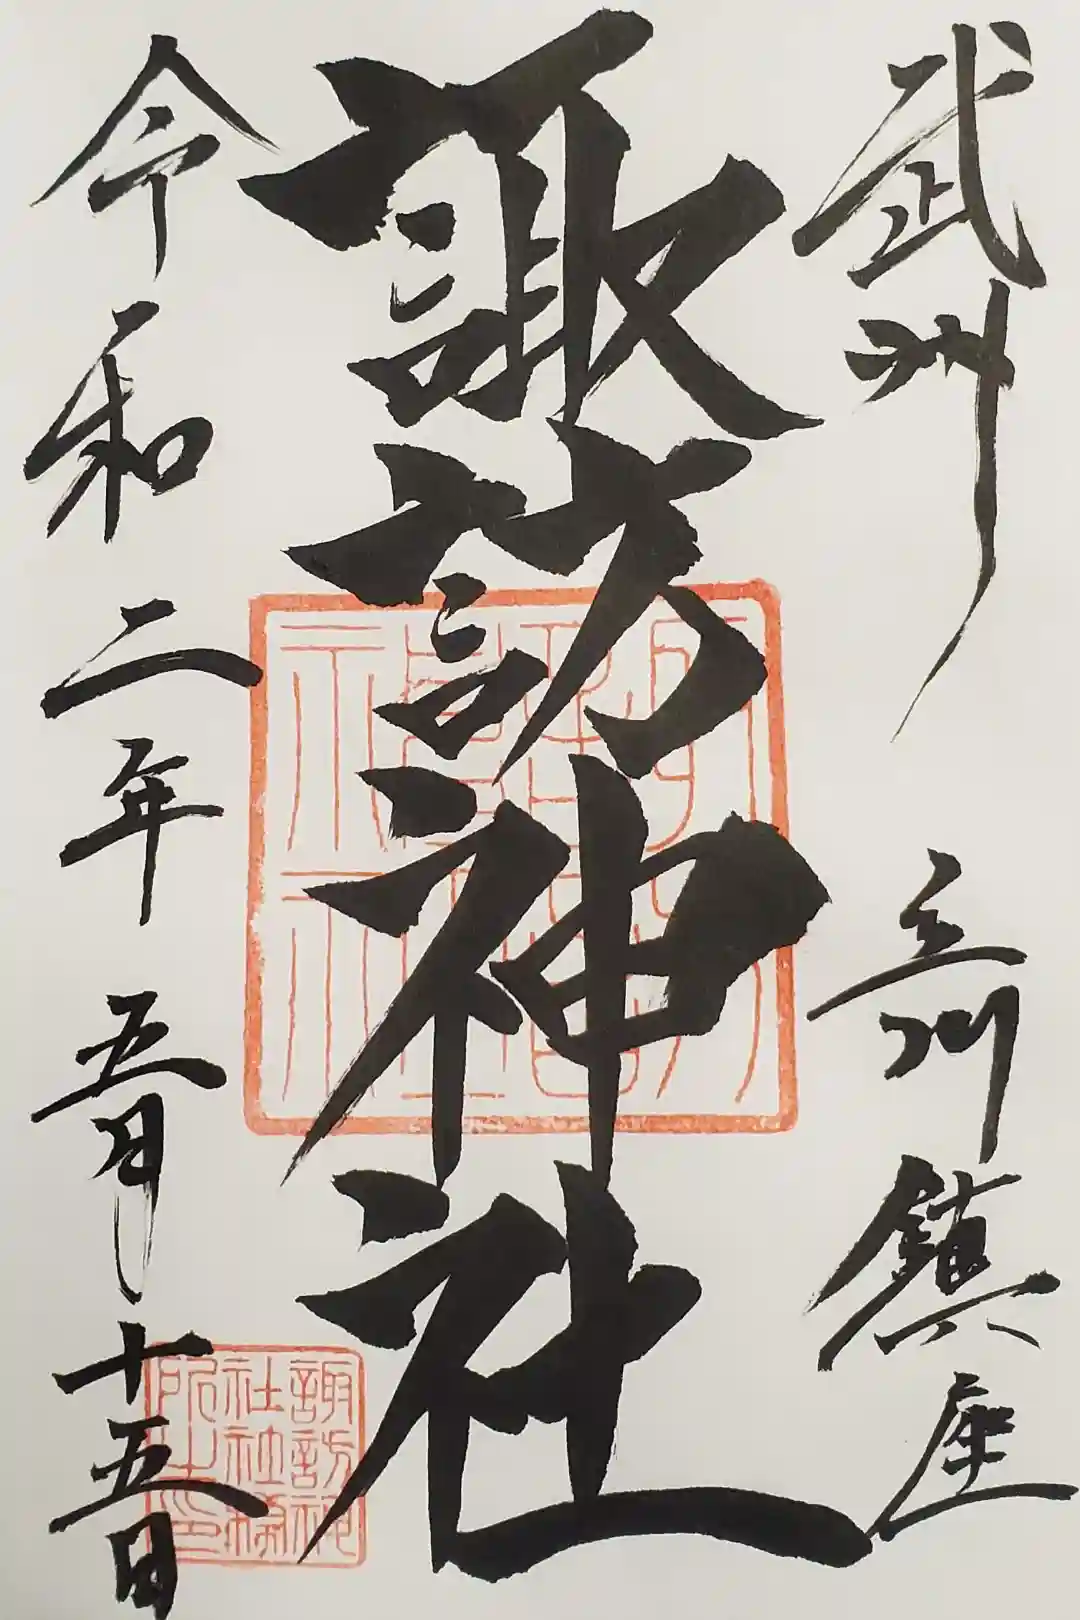 武州 立川鎮座
諏訪神社
令和二年 五月十五日
諏訪神
社社務
所之印